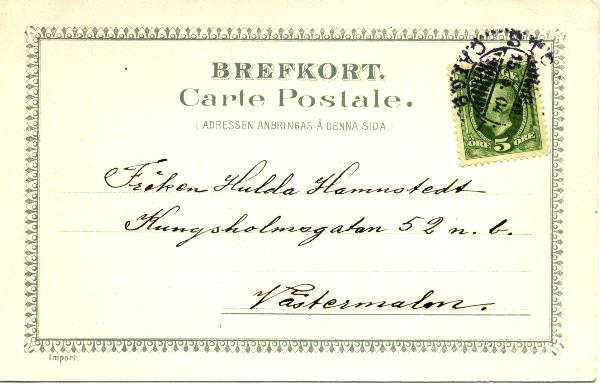 BREFKORT.
Carte Postale.
(ADRESSEN ANBRINGAS Å DENNA SIDA.)
ÖRE 5 ÖRE
Fröken Hulda Hamnstedt
Kungsholmsgatan 52 n. b.
Västermalm.
Import.